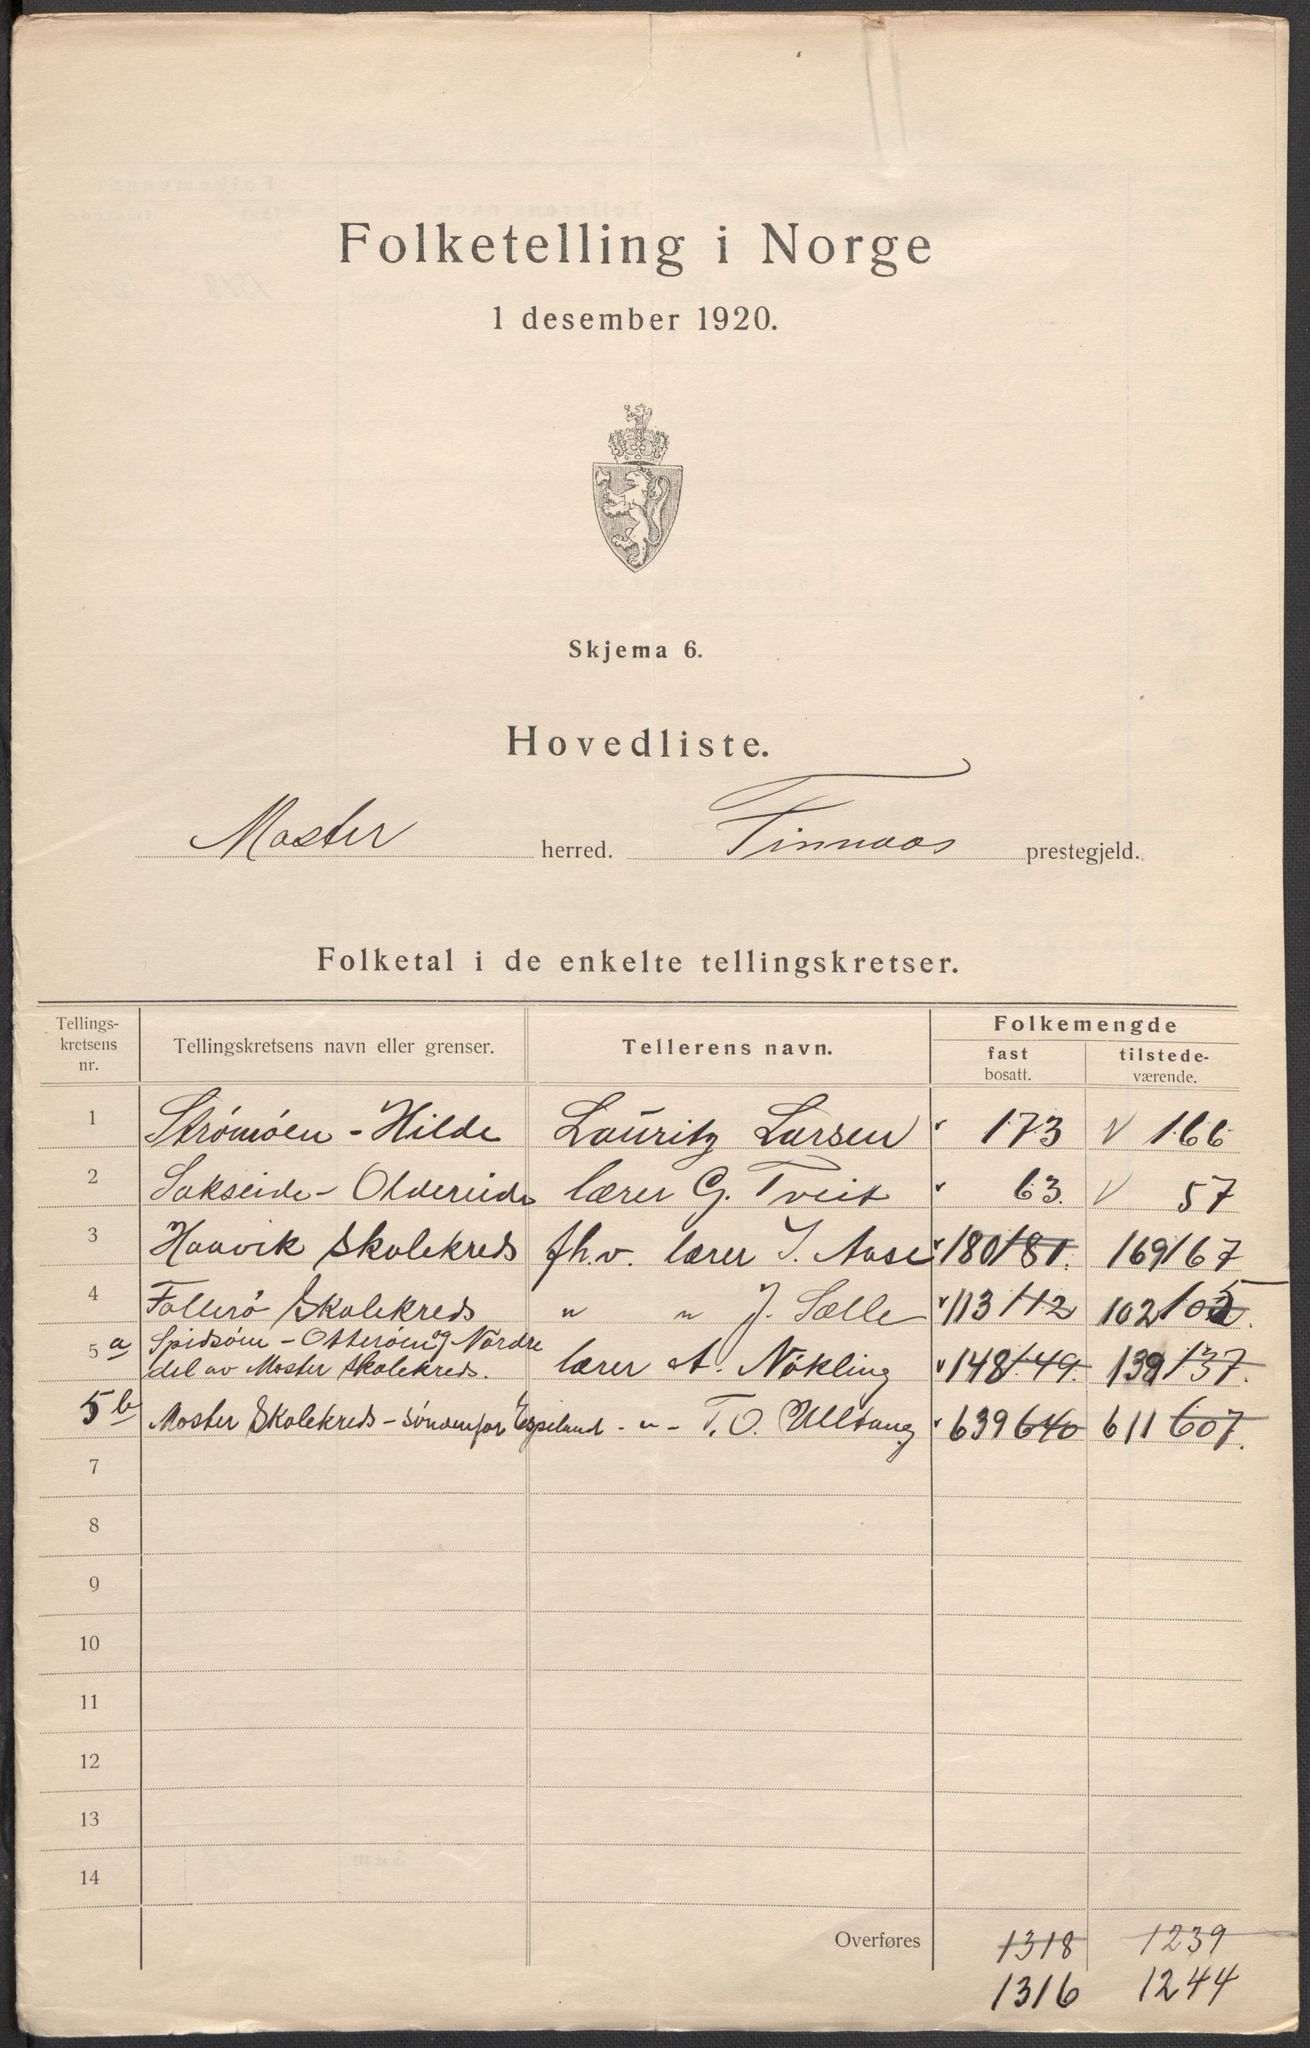 Folketelling i Norge
1 desember 1920.
Skjema 6.
Hovedliste.
Moster herred. Finnaas prestegjeld.
Folketal i de enkelte tellingskretser.
Tellings-
kretsens
nr.
Tellingskretsens navn eller grenser.
Tellerens navn.
Folkemengde
fast
bosatt.
tilstede-
værende.
1 Strømøen - Hilde Lauritz Larsen 173 166
2 Sakseide - Oldereide lærer G. Tveit 63. 57
3 Haavik Skolekreds fh.v. lærer I. Aase 180 181. 169 167
4 Folterö Skolekreds " " J. Sælle 113 112 102 105.
5 a Spidsöen - Otteröen og Nordre
del av Moster Skolekreds. lærer A. Nökling 148 149. 139 137.
5 b Moster Skolekreds - sönnenfor Espeland - " - T. O. Ulltang 639 640 611 607.
7
8
9
10
11
12
13
14
Overføres 1318 1239
1316 1244